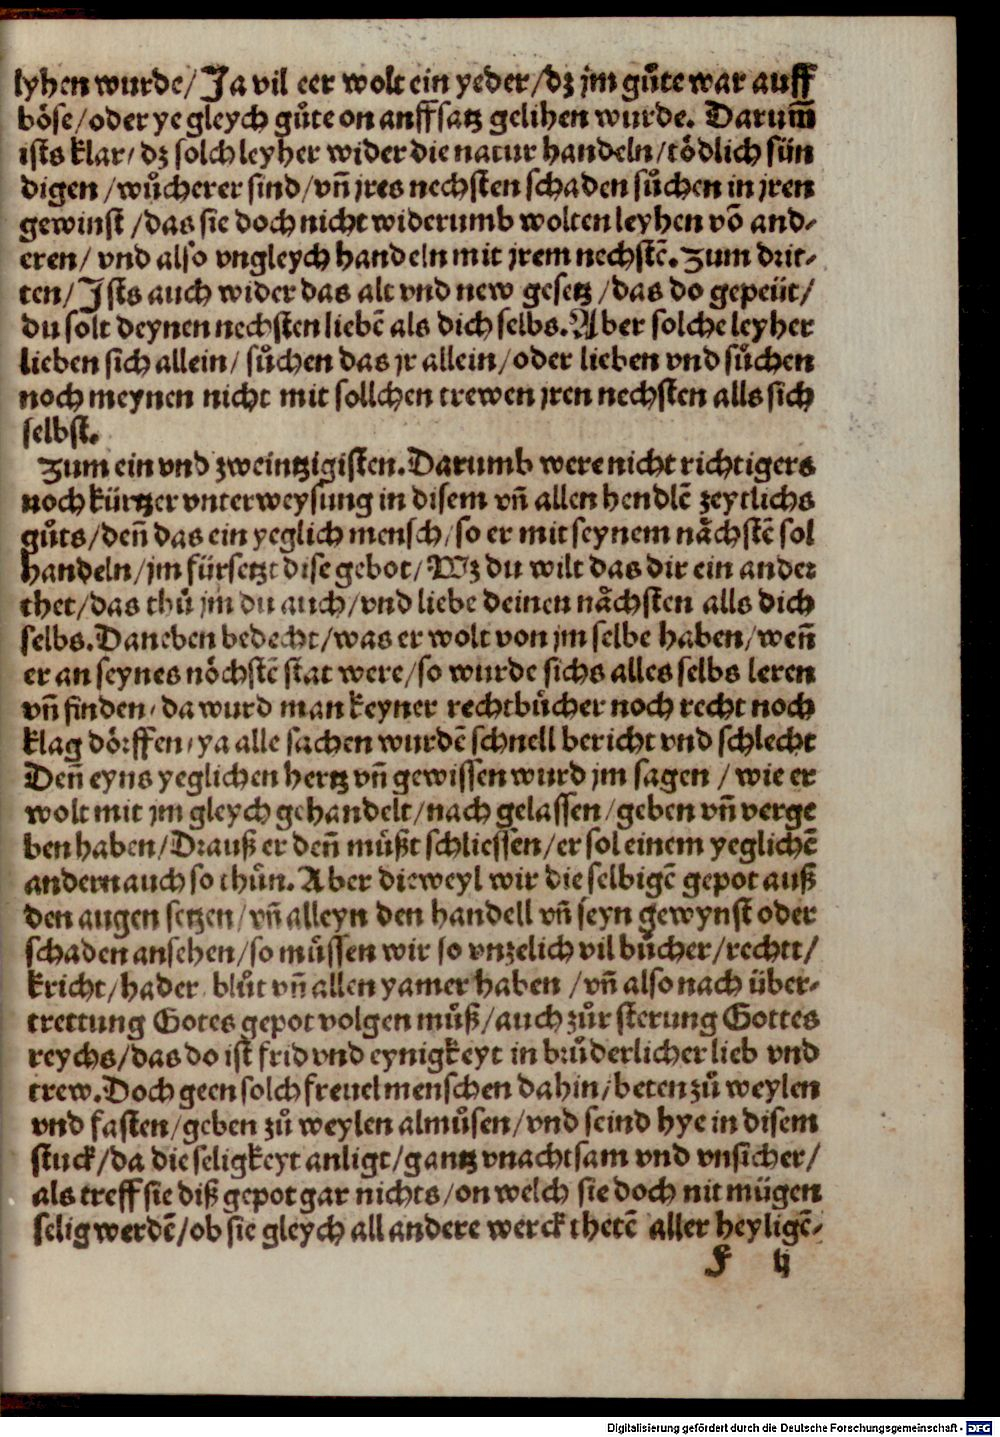 lyhen wurde/ Ja vil eer wolt ein yeder/dz jm gůte war auff
böse/oder ye gleych gůte on auffsatz gelihen wurde. Darum̃
ists klar/ dz solch leyher wider die natur handeln/tödlich sün
digen/wůcherer sind/vñ jres nechsten schaden sůchen in jren
gewinst/das sie doch nicht widerumb wolten leyhen võ and-
eren/ vnd also vngleych handeln mit jrem nechstẽ. Zum drit-
ten/ Ists auch wider das alt vnd new gesetz/das do gepeüt/
du solt deynen nechsten liebẽ als dich selbs. Aber solche leyher
lieben sich allein/ sůchen das jr allein/oder lieben vnd sůchen
noch meynen nicht mit sollchen trewen jren nechsten alls sich
selbst.
Zum ein vnd zweintzigisten. Darumb were nicht richtigers
noch kürtzer vnterweysung in disem vñ allen hendlẽ zeytlichs
gůts/deñ das ein yeglich mensch/so er mit seynem nächstẽ sol
handeln/jm fürsetzt dise gebot/Wz du wilt das dir ein ander
thet/das thů jm du auch/vnd liebe deinen nächsten alls dich
selbs. Daneben bedecht/was er wolt von jm selbe haben/weñ
er an seynes nöchstẽ stat were/so wurde sichs alles selbs leren
vñ finden/ da wurd man keyner rechtbůcher noch recht noch
klag dörffen/ya alle sachen wurdẽ schnell bericht vnd schlecht
Deñ eyns yeglichen hertz vñ gewissen wurd jm sagen/ wie er
wolt mit jm gleych gehandelt/nach gelassen/geben vñ verge
ben haben/Drauß er deñ můßt schliessen/er sol einem yeglichẽ
andern auch so thůn. Aber dieweyl wir die selbigẽ gepot auß
den augen setzen/vñ alleyn den handell vñ seyn gewynst oder
schaden ansehen/so můssen wir so vnzelich vil bůcher/rechtt/
kricht/hader blůt vñ allen yamer haben/vñ also nach über-
trettung Gotes gepot volgen můß/auch zůr sterung Gottes
reychs/das do ist frid vnd eynigkeyt in brůderlicher lieb vnd
trew. Doch geen solch freuelmenschen dahin/beten zů weylen
vnd fasten/geben zů weylen almůsen/vnd seind hye in disem
stuck/da die seligkeyt anligt/gantz vnachtsam vnd vnsicher/
als treff sie diß gepot gar nichts/on welch sie doch nit mügen
selig werdẽ/ob sie gleych all andere werck thetẽ aller heyligẽ-
F ij
Digitalisierung gefördert durch die Deutsche Forschungsgemeinschaft - DFG